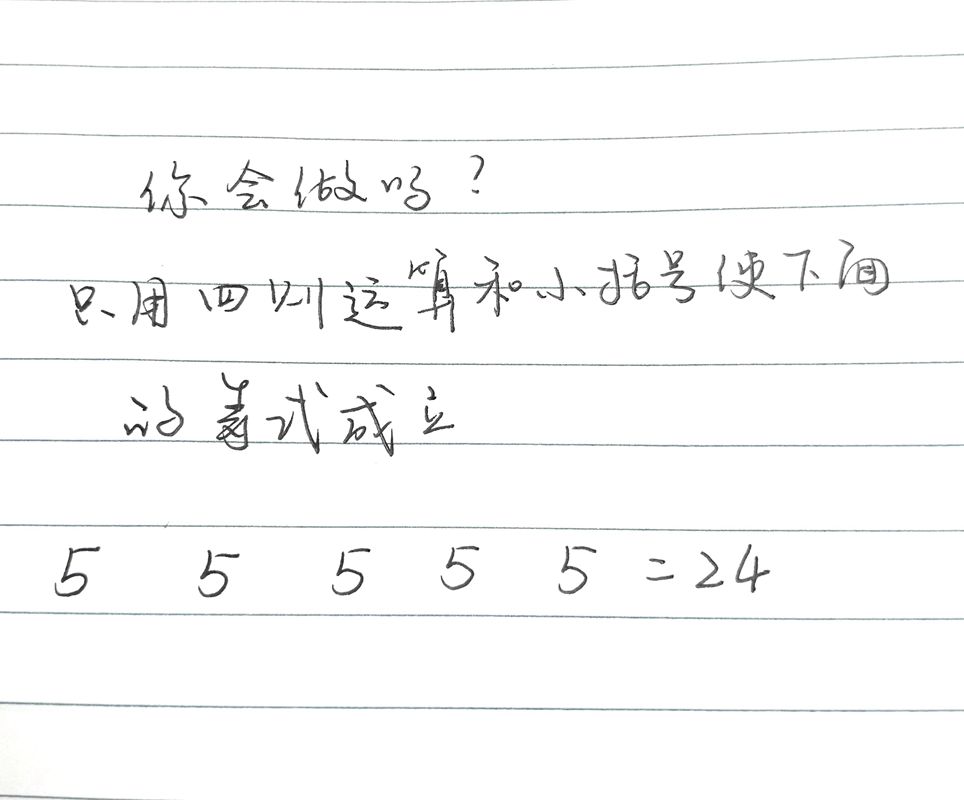 你会做吗？
只用四则运算和小括号使下面
的等式成立
5 5 5 5 5 = 24